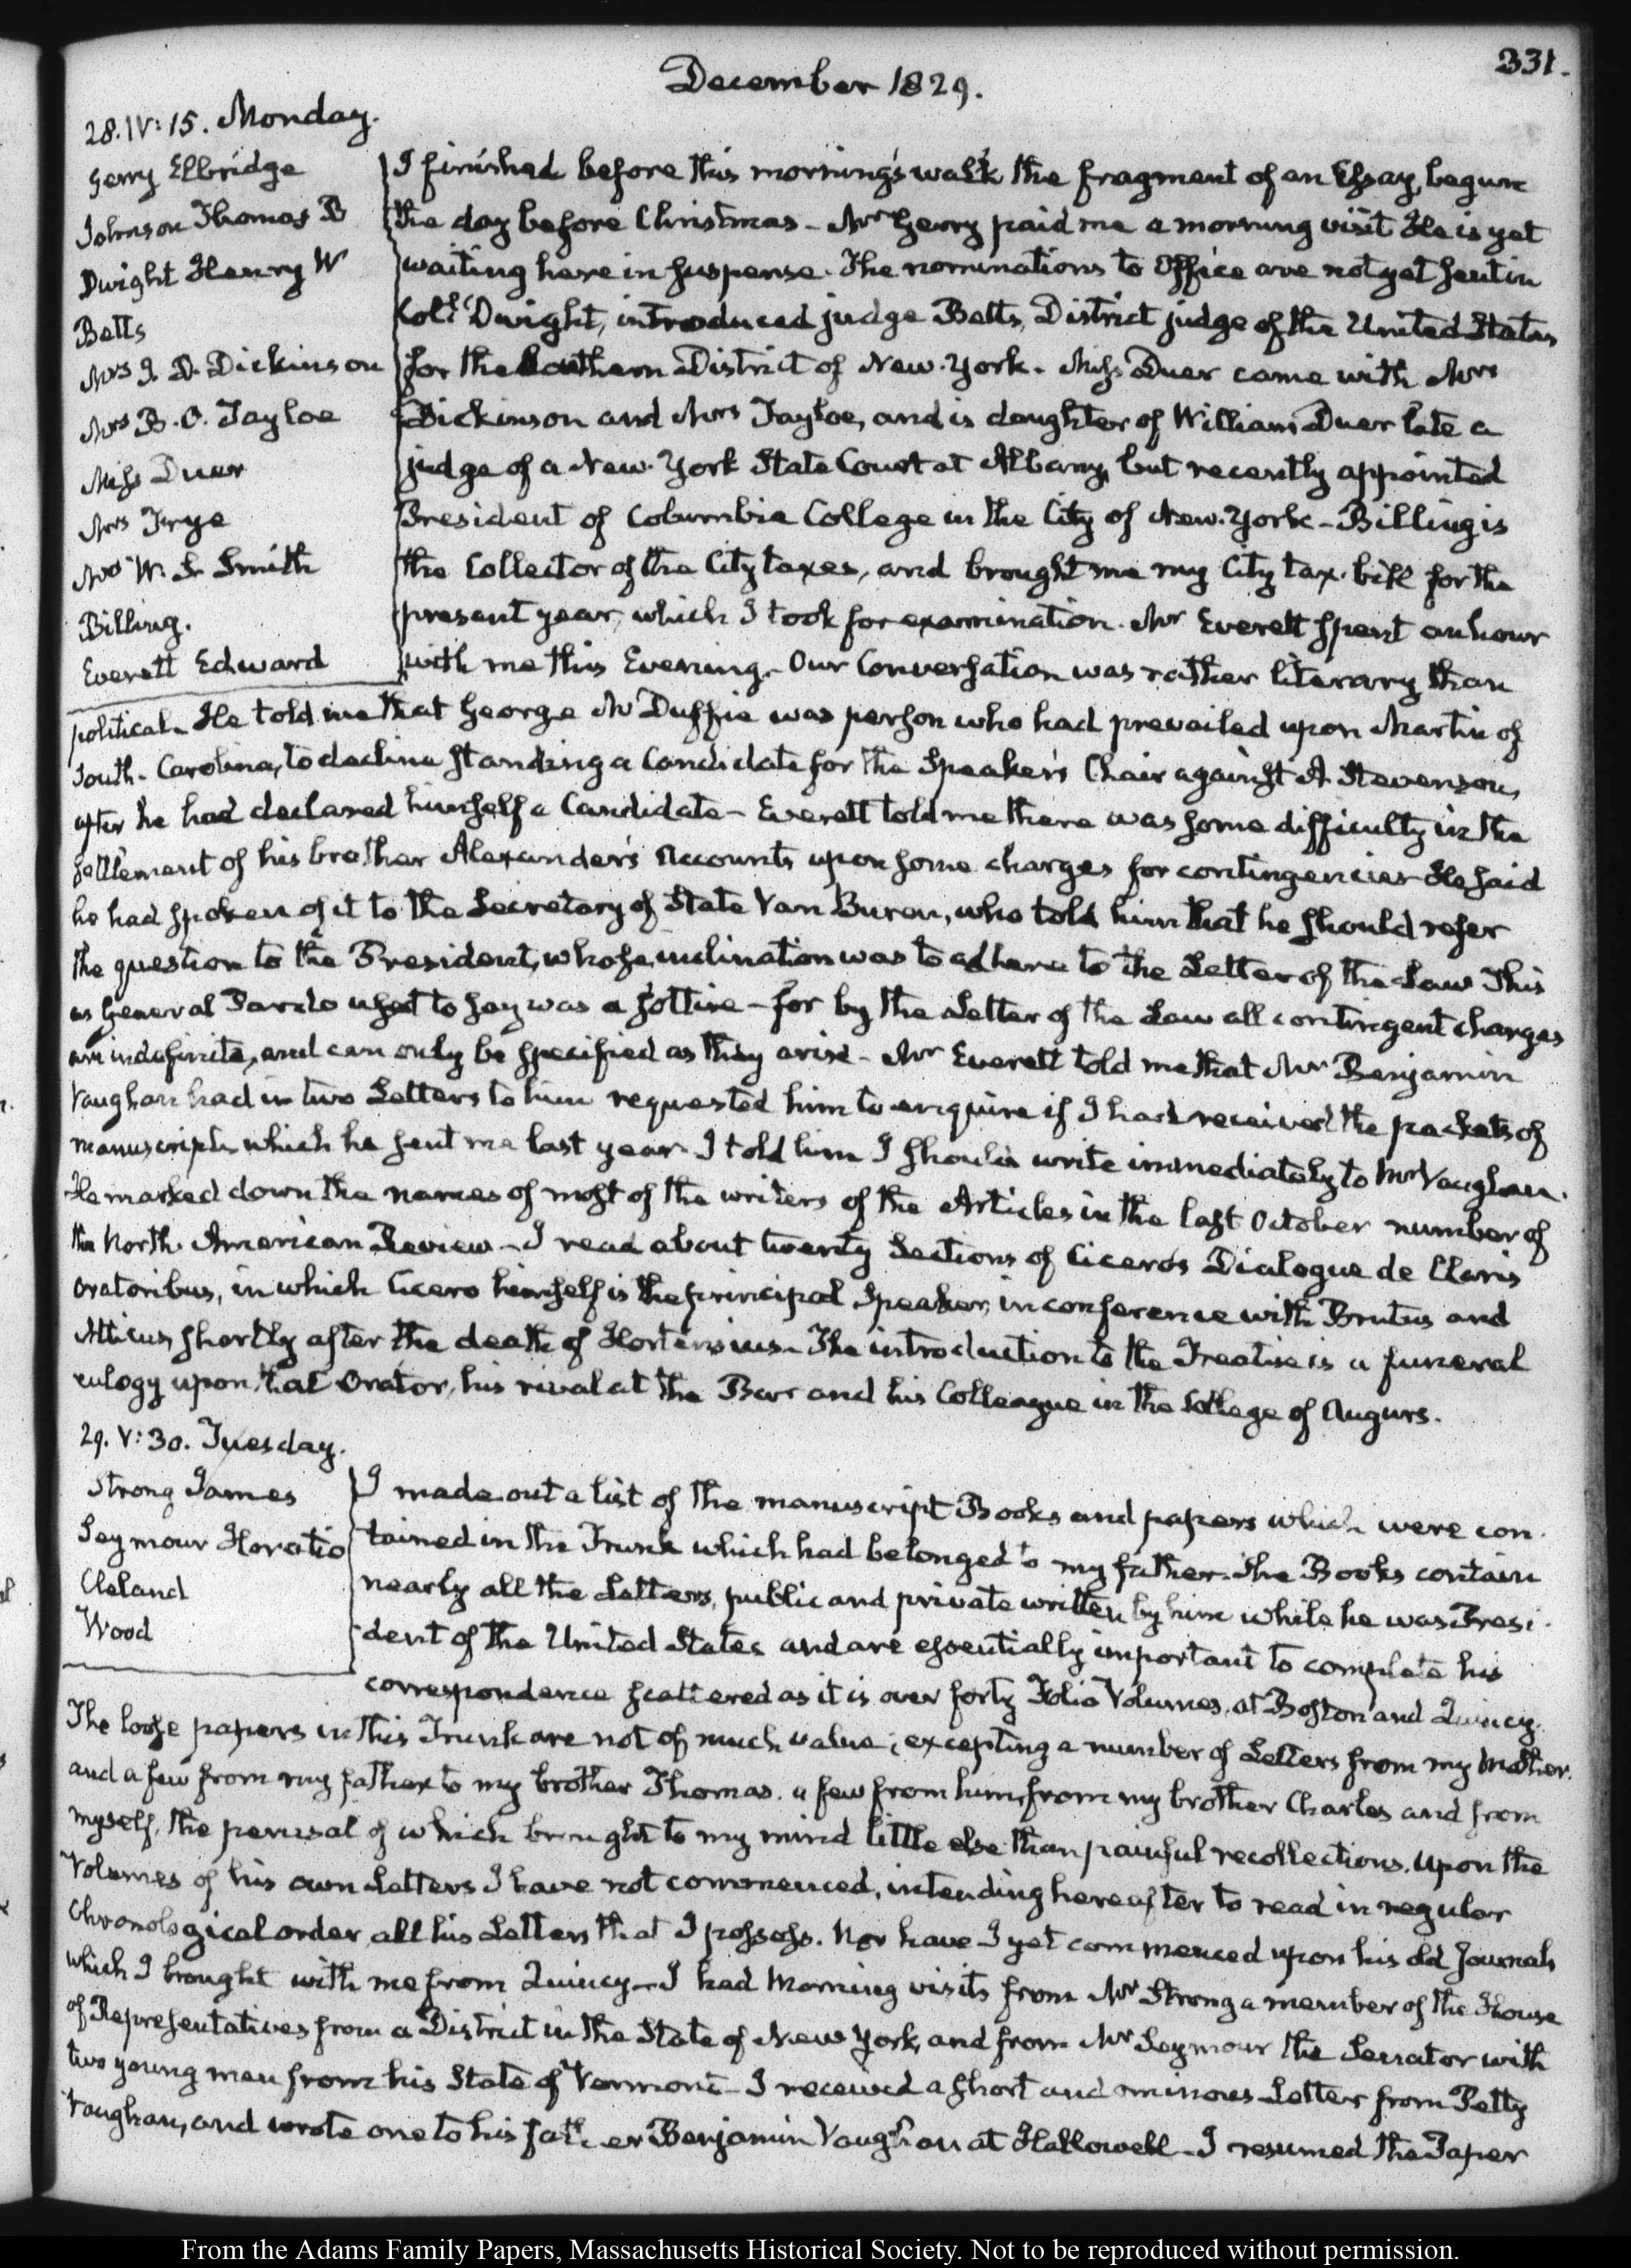 331.
December 1829.
28. IV: 15. Monday.
Gerry Elbridge
Johnson Thomas B
Dwight Henry W
Betts
Mrs J. D. Dickinson
Mrs B. O. Tayloe
Miss Duer
Mrs Frye
Mrs W. S. Smith
Billing.
Everett Edward
I finished before this morning's walk the fragment of an Essay, begun
the day before Christmas - Mr Gerry paid me a morning visit He is yet
waiting here in suspense. The nominations to Office are not yet sent in
Coll. Dwight, introduced judge Betts, District judge of the United States
for the Southern District of New-York. Miss Duer came with Mrs
Dickinson and Mrs Tayloe, and is daughter of William Duer late a
judge of a New-York State Court at Albany, but recently appointed
President of Columbia College in the City of New-York - Billing is
the Collector of the City taxes, and brought me my City tax-bill for the
present year, which I took for examination. Mr Everett spent an hour
with me this Evening. Our Conversation was rather literary than
political. He told me that George McDuffie was person who had prevailed upon Martin of
South-Carolina, to decline standing a Candidate for the Speaker's Chair against A. Stevenson,
after he had declared himself a Candidate - Everett told me there was some difficulty in the
settlement of his brother Alexander's Accounts upon some charges for contingencies He said
he had spoken of it to the Secretary of State Van Buren, who told him that he should refer
the question to the President, whose inclination was to adhere to the Letter of the Law This
as General Pardo used to say was a sottise - for by the Letter of the Law all contingent charges
are indefinite, and can only be specified as they arise - Mr Everett told me that Mr Benjamin
Vaughan had in two Letters to him requested him to enquire if I had received the packets of
manuscripts which he sent me last year. I told him I should write immediately to Mr Vaughan.
He marked down the names of most of the writers of the Articles in the last October number of
the North-American Review - I read about twenty Sections of Cicero's Dialogue de Claris
Oratoribus, in which Cicero himself is the principal Speaker, in conference with Brutus and
Atticus shortly after the death of Hortensius. The introduction to the Treatise is a funeral
eulogy upon that Orator, his rival at the Bar and his Colleague in the College of Augurs.
29. V: 30. Tuesday.
Strong James
Seymour Horatio
Cleland
Wood
I made out a list of the manuscript Books and papers which were con-
tained in the Trunk which had belonged to my father. The Books contain
nearly all the Letters, public and private written by him while he was Presi-
dent of the United States and are essentially important to complete his
correspondence scattered as it is over forty Folio Volumes, at Boston and Quincy.
The loose papers in this Trunk are not of much value; excepting a number of Letters from my Mother.
and a few from my father to my brother Thomas. a few from him, from my brother Charles and from
myself, the perusal of which brought to my mind little else than painful recollections. Upon the
Volumes of his own Letters I have not commenced, intending hereafter to read in regular
chronological order all his Letters that I possess. Nor have I yet commenced upon his old Journals
which I brought with me from Quincy - I had Morning visits from Mr Strong a member of the House
of Representatives from a District in the State of New York, and from Mr Seymour the Senator with
two young men from his State of Vermont - I received a short and minous Letter from Petty
Vaughan, and wrote one to his father Benjamin Vaughan at Hallowell - I resumed the Paper
From the Adams Family Papers, Massachusetts Historical Society. Not to be reproduced without permission.